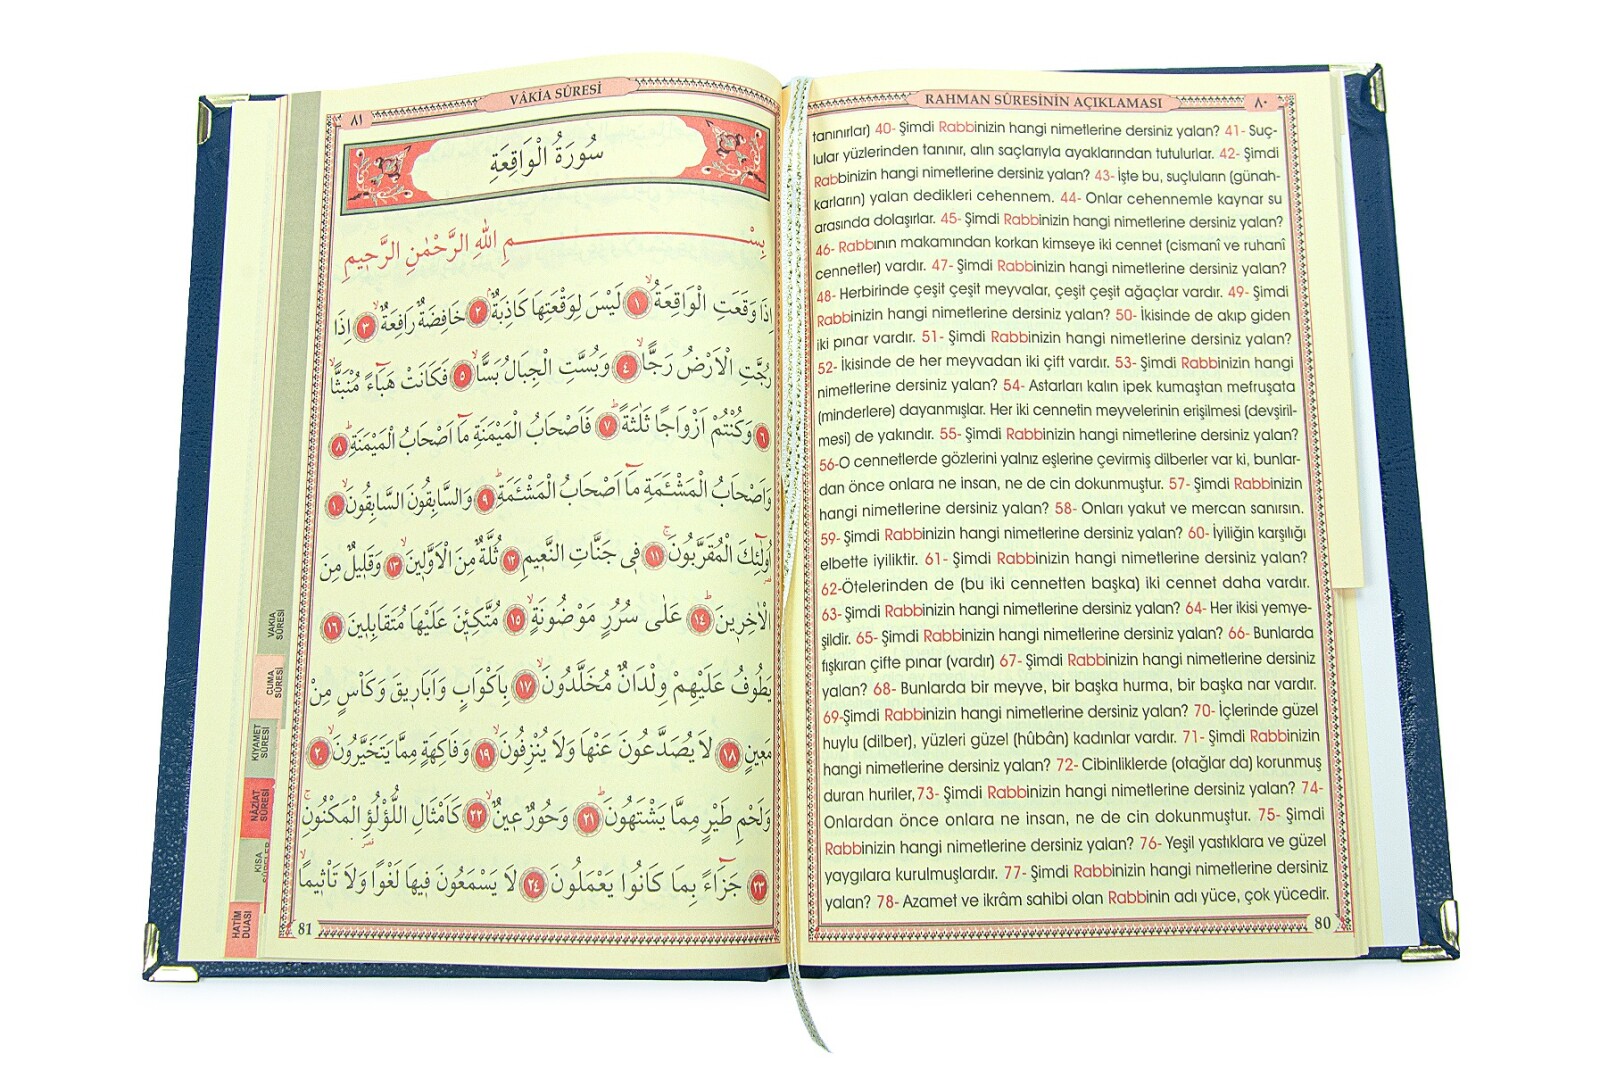 RAHMAN SÛRESİNİN AÇIKLAMASI
٨٠
tanınırlar) 40- Şimdi Rabbinizin hangi nimetlerine dersiniz yalan? 41- Suç-
lular yüzlerinden tanınır, alın saçlarıyla ayaklarından tutulurlar. 42- Şimdi
Rabbinizin hangi nimetlerine dersiniz yalan? 43- İşte bu, suçluların (günah-
karların) yalan dedikleri cehennem. 44- Onlar cehennemle kaynar su
arasında dolaşırlar. 45- Şimdi Rabbinizin hangi nimetlerine dersiniz yalan?
46- Rabbının makamından korkan kimseye iki cennet (cismanî ve ruhanî
cennetler) vardır. 47- Şimdi Rabbinizin hangi nimetlerine dersiniz yalan?
48- Herbirinde çeşit çeşit meyvalar, çeşit çeşit ağaçlar vardır. 49- Şimdi
Rabbinizin hangi nimetlerine dersiniz yalan? 50- İkisinde de akıp giden
iki pınar vardır. 51- Şimdi Rabbinizin hangi nimetlerine dersiniz yalan?
52- İkisinde de her meyvadan iki çift vardır. 53- Şimdi Rabbinizin hangi
nimetlerine dersiniz yalan? 54- Astarları kalın ipek kumaştan mefruşata
(minderlere) dayanmışlar. Her iki cennetin meyvelerinin erişilmesi (devşiril-
mesi) de yakındır. 55- Şimdi Rabbinizin hangi nimetlerine dersiniz yalan?
56-O cennetlerde gözlerini yalnız eşlerine çevirmiş dilberler var ki, bunlar-
dan önce onlara ne insan, ne de cin dokunmuştur. 57- Şimdi Rabbinizin
hangi nimetlerine dersiniz yalan? 58- Onları yakut ve mercan sanırsın.
59- Şimdi Rabbinizin hangi nimetlerine dersiniz yalan? 60- İyiliğin karşılığı
elbette iyiliktir. 61- Şimdi Rabbinizin hangi nimetlerine dersiniz yalan?
62-Ötelerinden de (bu iki cennetten başka) iki cennet daha vardır.
63- Şimdi Rabbinizin hangi nimetlerine dersiniz yalan? 64- Her ikisi yemye-
şildir. 65- Şimdi Rabbinizin hangi nimetlerine dersiniz yalan? 66- Bunlarda
fışkıran çifte pınar (vardır) 67- Şimdi Rabbinizin hangi nimetlerine dersiniz
yalan? 68- Bunlarda bir meyve, bir başka hurma, bir başka nar vardır.
69-Şimdi Rabbinizin hangi nimetlerine dersiniz yalan? 70- İçlerinde güzel
huylu (dilber), yüzleri güzel (hûbân) kadınlar vardır. 71- Şimdi Rabbinizin
hangi nimetlerine dersiniz yalan? 72- Cibinliklerde (otağlar da) korunmuş
duran huriler,73- Şimdi Rabbinizin hangi nimetlerine dersiniz yalan? 74-
Onlardan önce onlara ne insan, ne de cin dokunmuştur. 75- Şimdi
Rabbinizin hangi nimetlerine dersiniz yalan? 76- Yeşil yastıklara ve güzel
yaygılara kurulmuşlardır. 77- Şimdi Rabbinizin hangi nimetlerine dersiniz
yalan? 78- Azamet ve ikrâm sahibi olan Rabbinin adı yüce, çok yücedir.
80
٨١
VÂKİA SÛRESİ
سُورَةُ الْوَاقِعَةِ
بِسْمِ اللّٰهِ الرَّحْمٰنِ الرَّحٖيمِ
اِذَا وَقَعَتِ الْوَاقِعَةُ ١ لَيْسَ لِوَقْعَتِهَا كَاذِبَةٌ ٢ خَافِضَةٌ رَافِعَةٌ ٣ اِذَا
رُجَّتِ الْاَرْضُ رَجًّا ٤ وَبُسَّتِ الْجِبَالُ بَسًّا ٥ فَكَانَتْ هَبَٓاءً مُنْبَثًّا
٦ وَكُنْتُمْ اَزْوَاجًا ثَلٰثَةً ٧ فَاَصْحَابُ الْمَيْمَنَةِ مَٓا اَصْحَابُ الْمَيْمَنَةِ ٨
وَاَصْحَابُ الْمَشْـَٔمَةِ مَٓا اَصْحَابُ الْمَشْـَٔمَةِ ٩ وَالسَّابِقُونَ السَّابِقُونَ ١٠
اُو۬لٰٓئِكَ الْمُقَرَّبُونَ ١١ فٖى جَنَّاتِ النَّعٖيمِ ١٢ ثُلَّةٌ مِنَ الْاَوَّلٖينَ ١٣ وَقَلٖيلٌ مِنَ
الْاٰخِرٖينَ ١٤ عَلٰى سُرُرٍ مَوْضُونَةٍ ١٥ مُتَّكِـٖٔينَ عَلَيْهَا مُتَقَابِلٖينَ ١٦
يَطُوفُ عَلَيْهِمْ وِلْدَانٌ مُخَلَّدُونَ ١٧ بِاَكْوَابٍ وَاَبَارٖيقَ وَكَاْسٍ مِنْ
مَعٖينٍ ١٨ لَا يُصَدَّعُونَ عَنْهَا وَلَا يُنْزِفُونَ ١٩ وَفَاكِهَةٍ مِمَّا يَتَخَيَّرُونَ ٢٠
وَلَحْمِ طَيْرٍ مِمَّا يَشْتَهُونَ ٢١ وَحُورٌ عٖينٌ ٢٢ كَاَمْثَالِ اللُّؤْلُؤِ الْمَكْنُونِ
٢٣ جَزَٓاءً بِمَا كَانُوا يَعْمَلُونَ ٢٤ لَا يَسْمَعُونَ فٖيهَا لَغْوًا وَلَا تَاْثٖيمًا
81
VAKIA
SÛRESİ
CUMA
SÛRESİ
KIYAMET
SÛRESİ
NÂZİAT
SÛRESİ
KISA
HATİM
DUASI